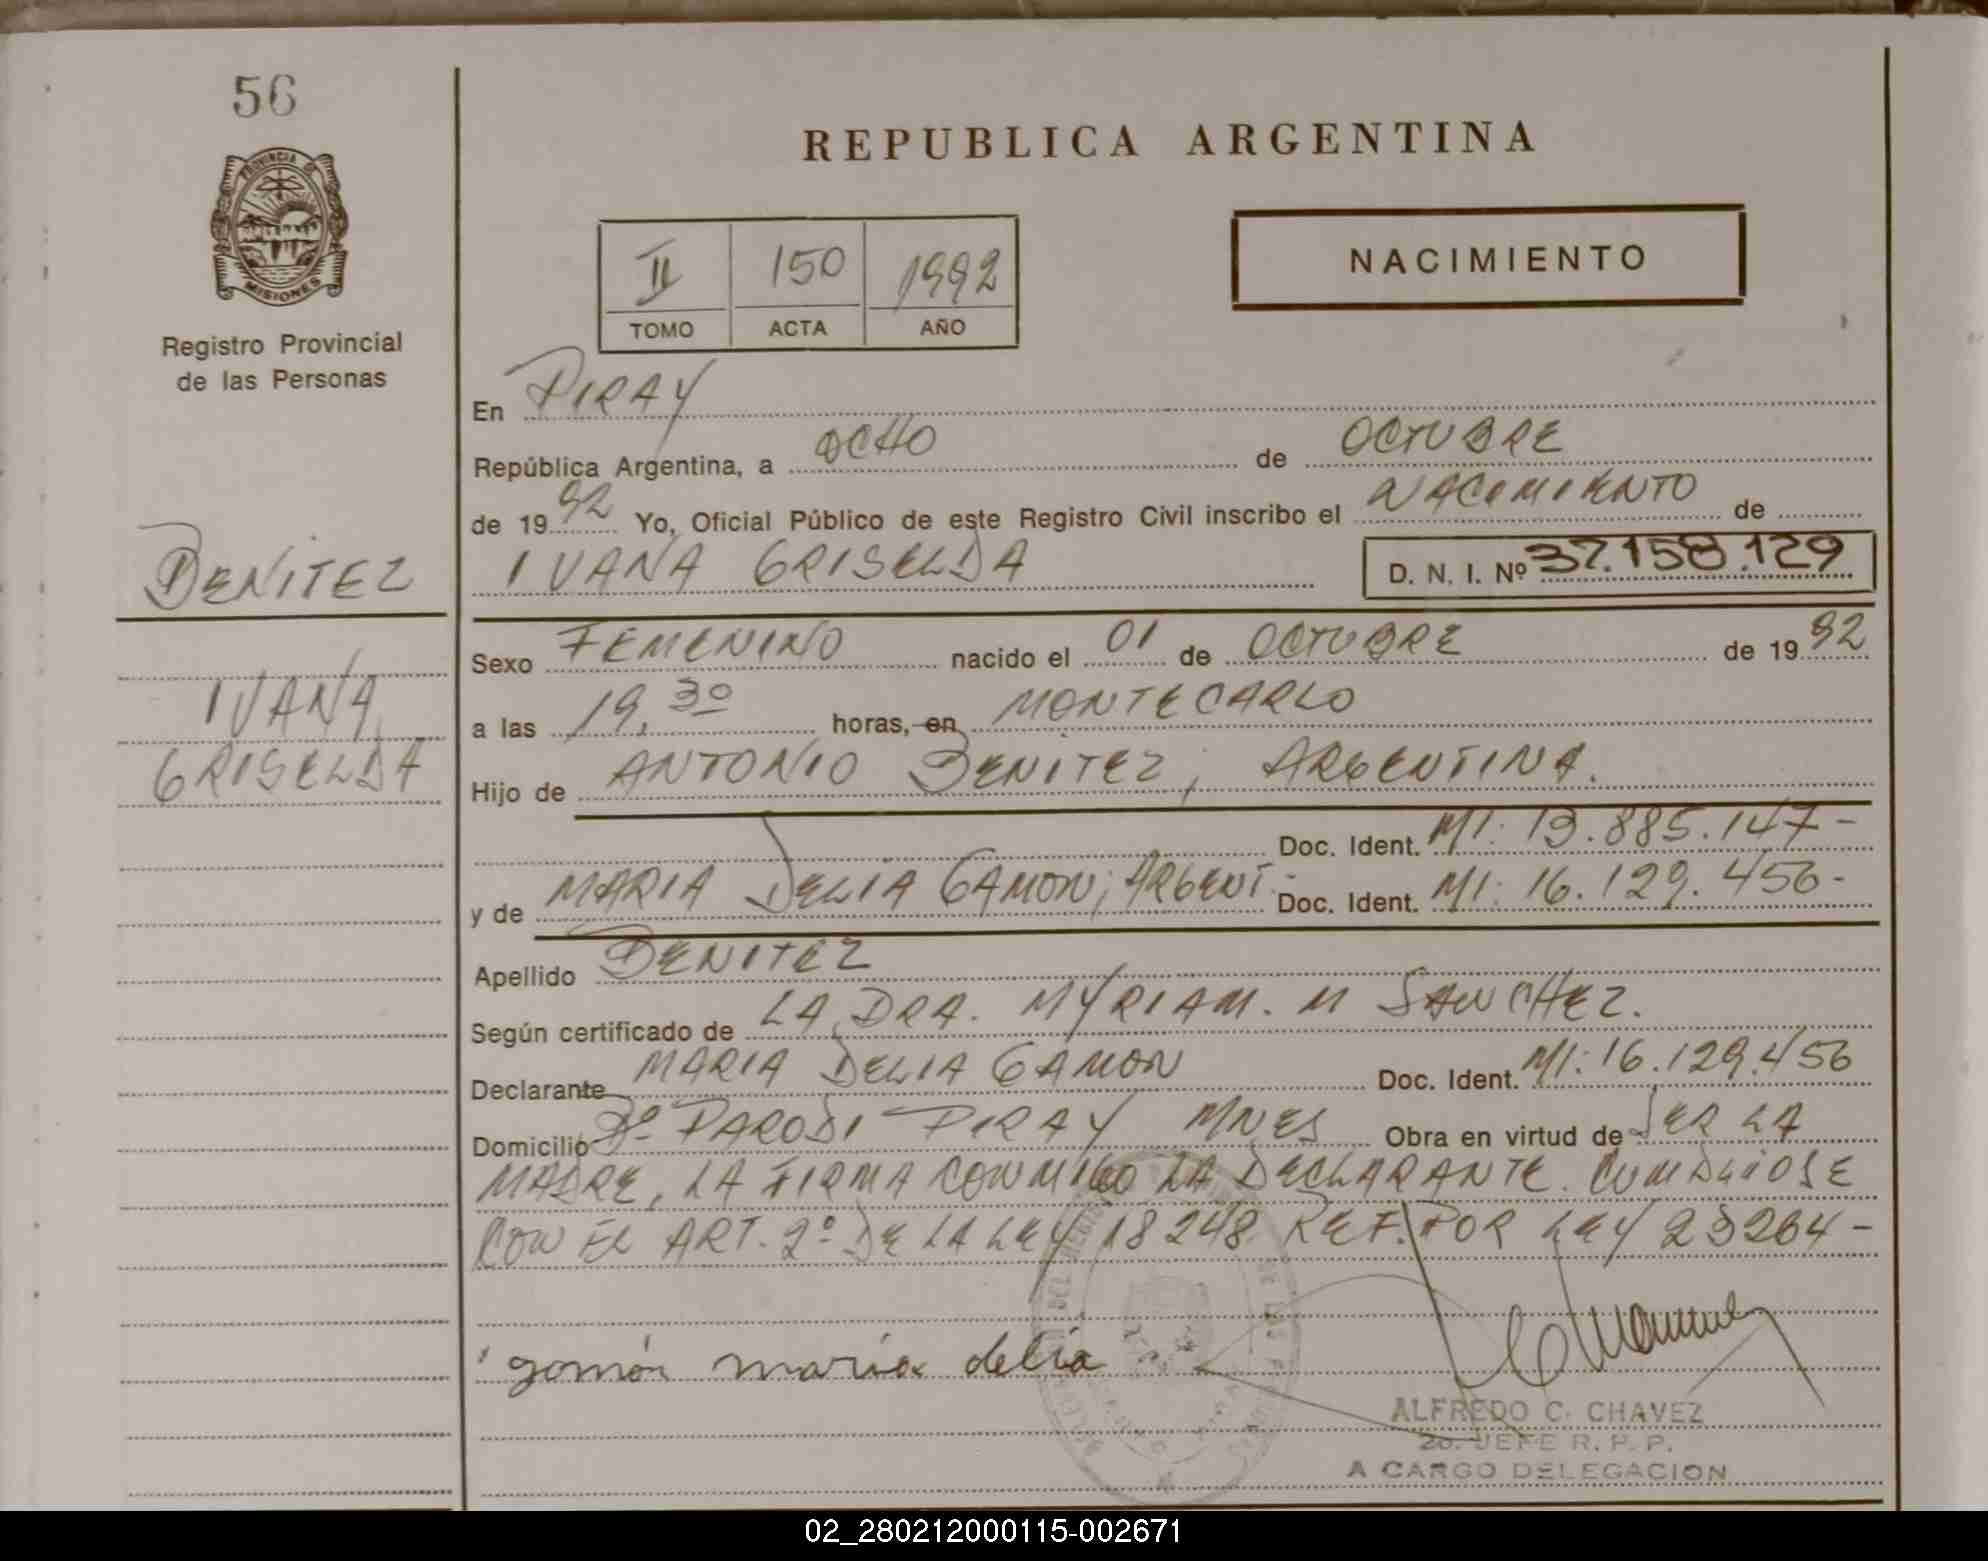 56
PROVINCIA DE
MISIONES
Registro Provincial
de las Personas
BENITEZ
IVANA
GRISELDA
REPUBLICA ARGENTINA
II 150 1992
TOMO ACTA AÑO
NACIMIENTO
En PIRAY
República Argentina, a OCHO de OCTUBRE
de 1992 Yo, Oficial Público de este Registro Civil inscribo el NACIMIENTO de
IVANA GRISELDA D. N. I. Nº 37.158.129
Sexo FEMENINO nacido el 01 de OCTUBRE de 1992
a las 19,30 horas, en MONTECARLO
Hijo de ANTONIO BENITEZ, ARGENTINA.
Doc. Ident. MI: 13.885.147-
y de MARIA DELIA GAMON; ARGENT. Doc. Ident. MI: 16.129.456-
Apellido BENITEZ
Según certificado de LA DRA. MYRIAM. M SANCHEZ.
Declarante MARIA DELIA GAMON Doc. Ident. MI: 16.129.456
Domicilio Bº PARODI PIRAY MNES Obra en virtud de SER LA
MADRE, LA FIRMA CONMIGO LA DECLARANTE. CUMPLIOSE
CON EL ART. 2º DE LA LEY 18248 REF. POR LEY 23264-
gomón maria delia
ALFREDO C. CHAVEZ
2o. JEFE R. P. P.
A CARGO DELEGACION
02_280212000115-002671